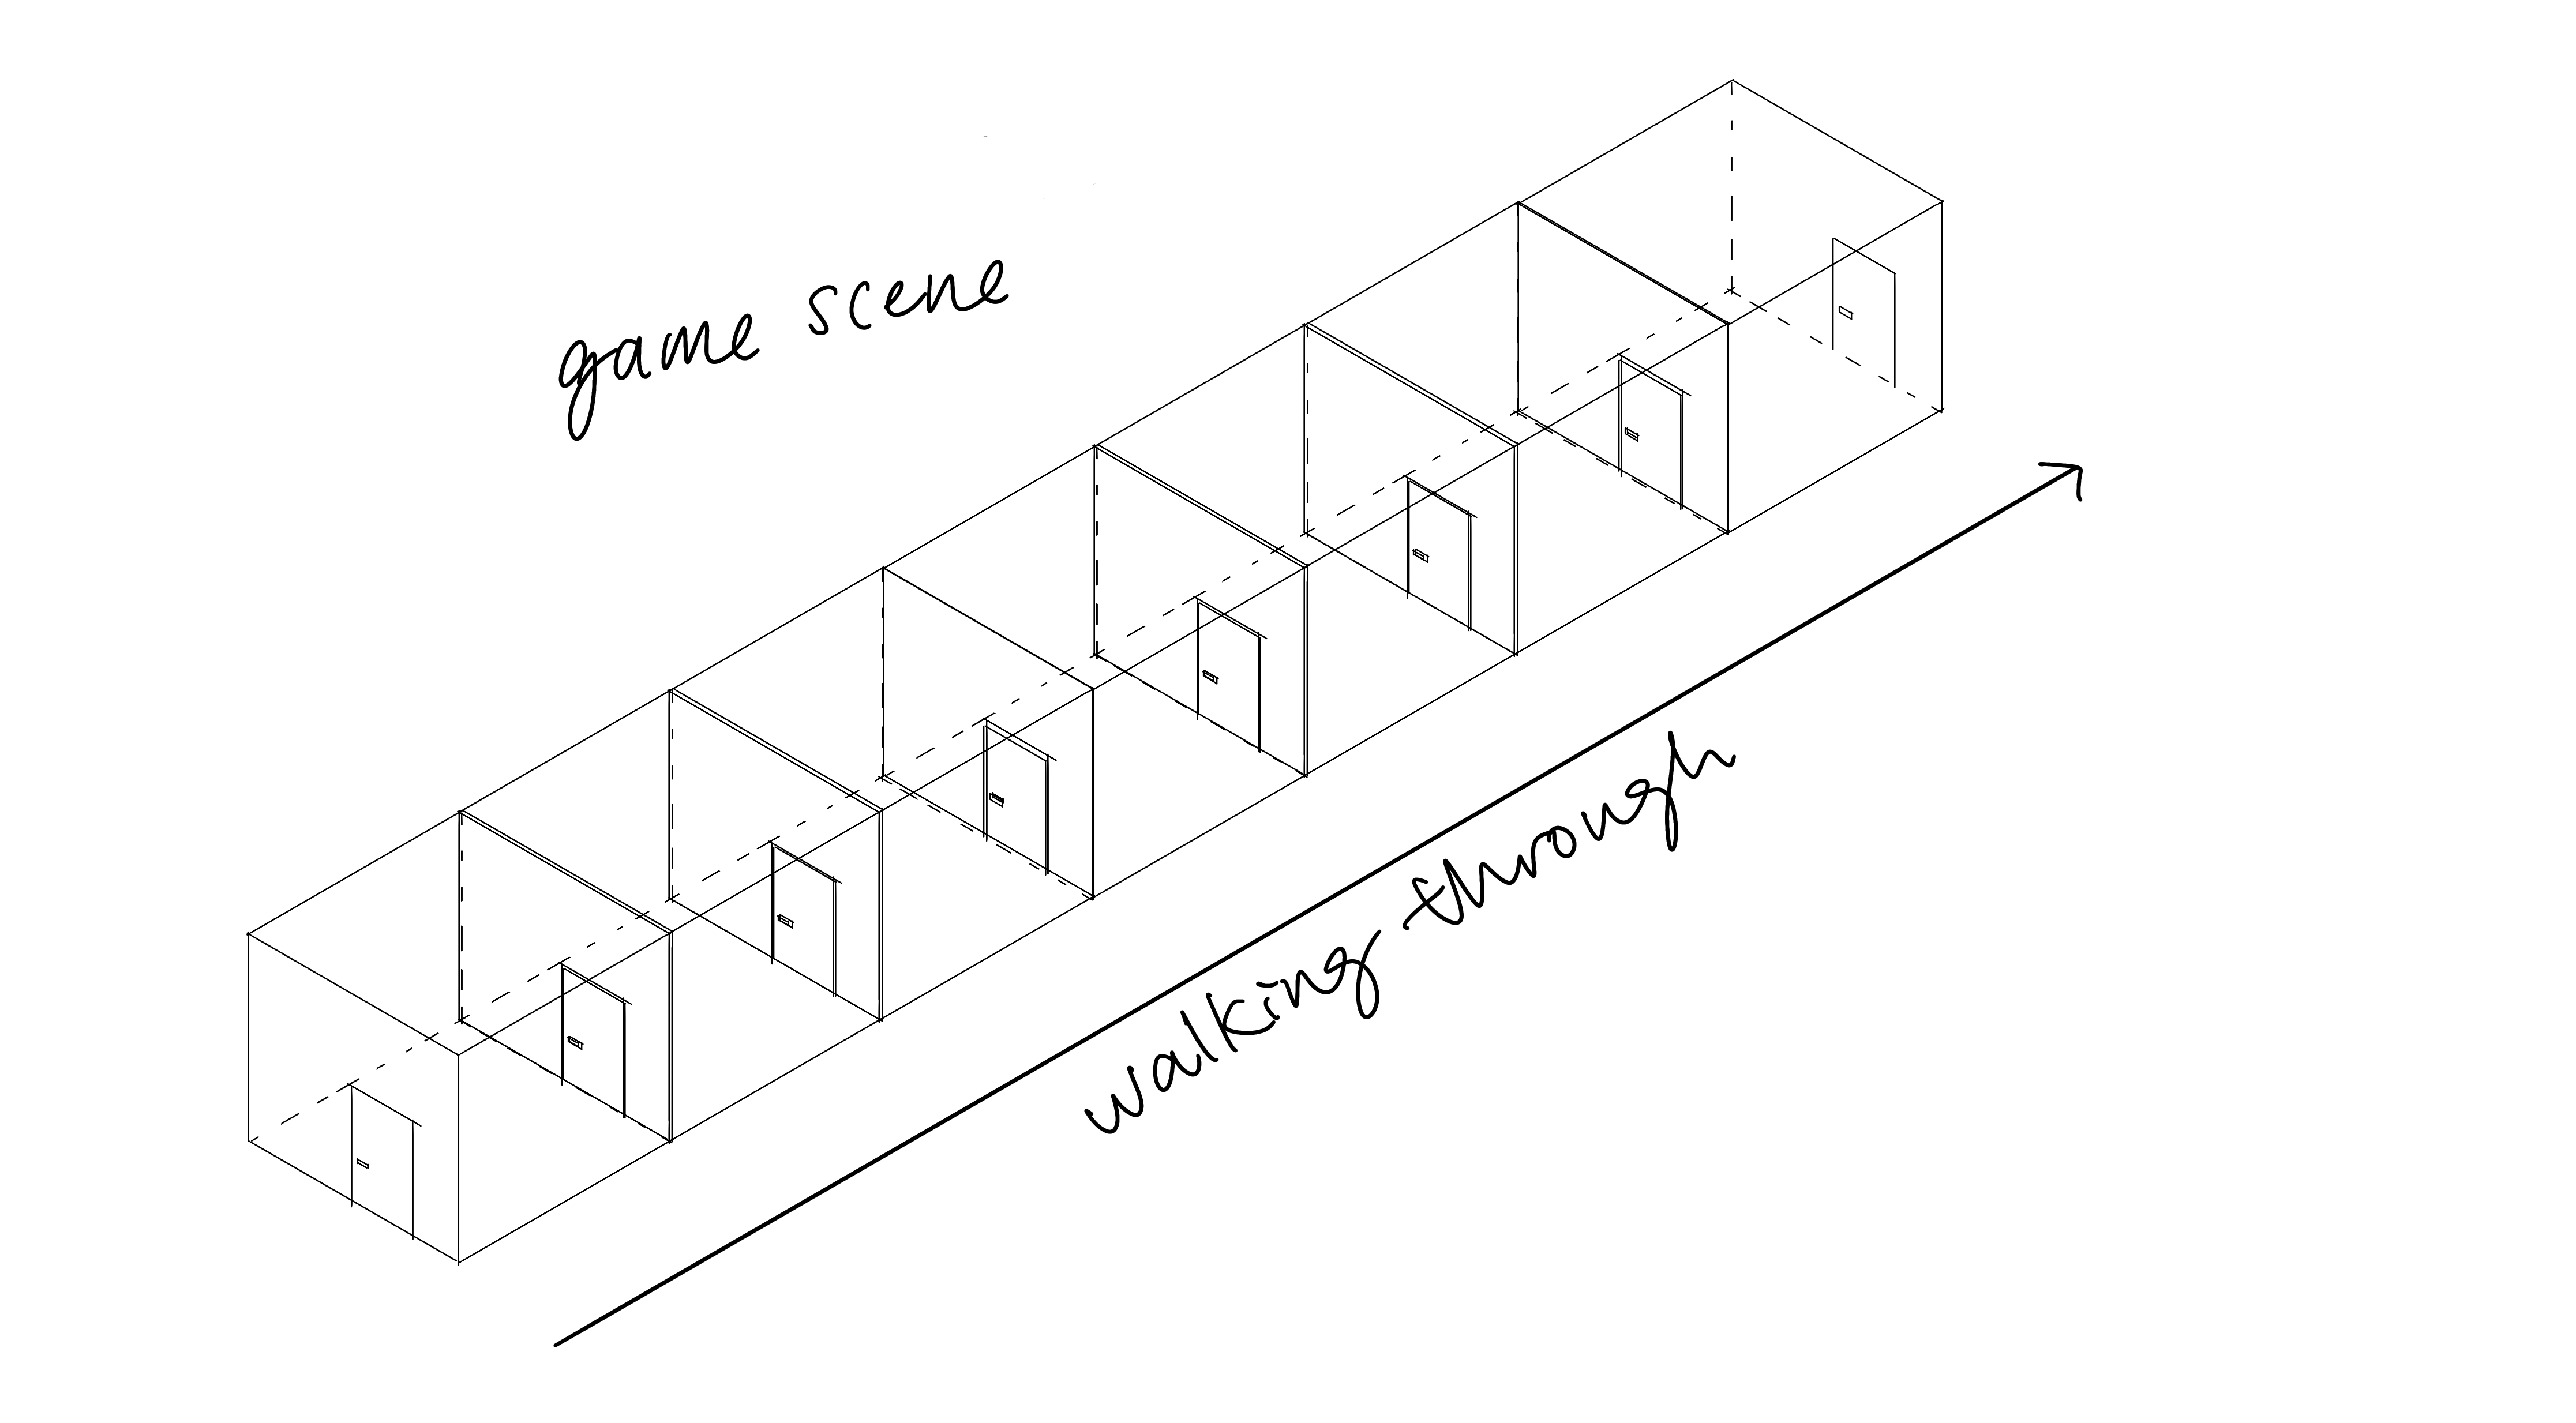 game scene
walking through